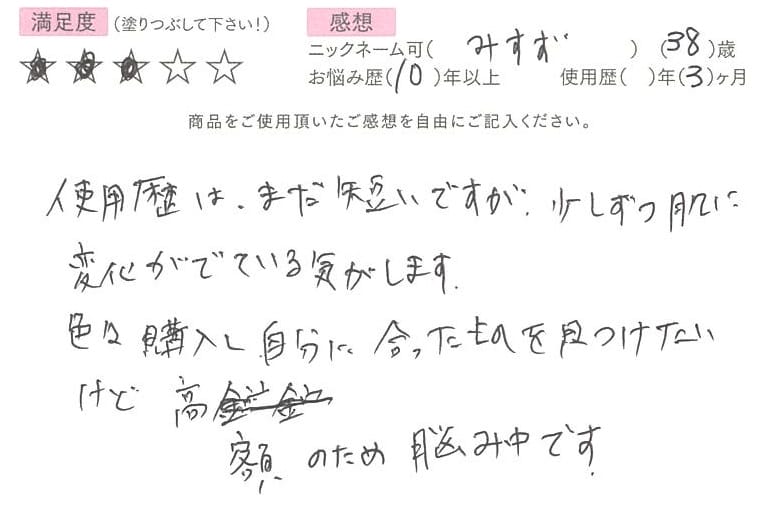 満足度 (塗りつぶして下さい!)
感想
ニックネーム可( みすず ) (38)歳
お悩み歴(10)年以上 使用歴( )年(3)ヶ月
商品をご使用頂いたご感想を自由にご記入ください。
使用歴は、まだ短いですが、少しずつ肌に
変化がでている気がします。
色々購入し自分に合ったものを見つけたい
けど 高
額のため 悩み中です。